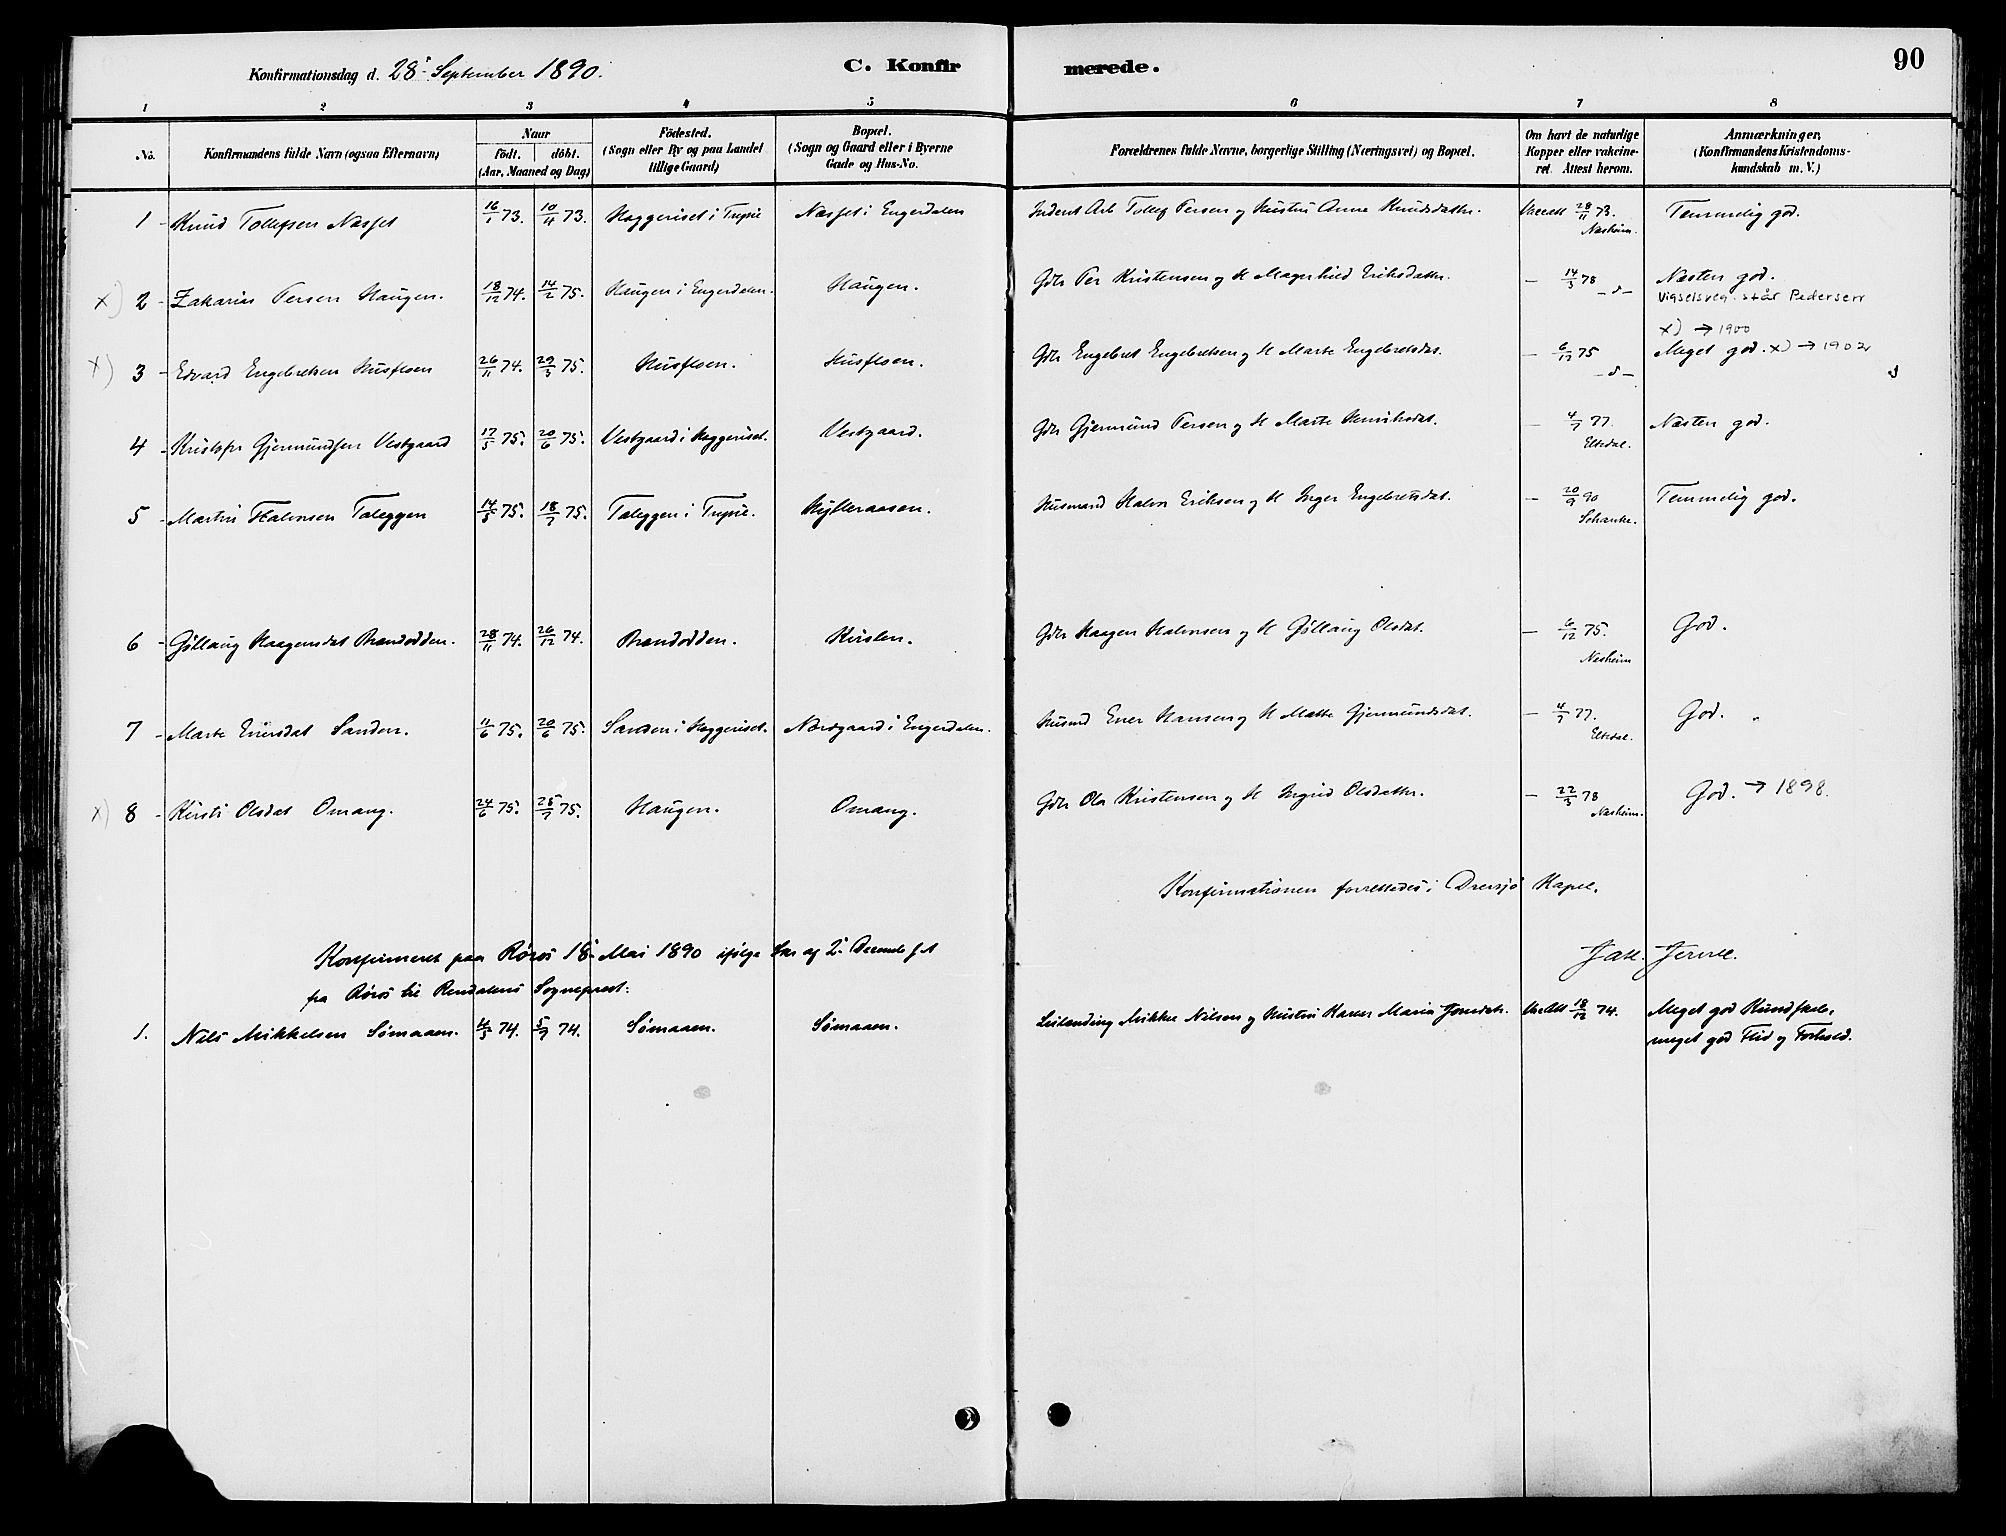 Konfirmationsdag d. 28 September 1890.
C. Konfirmerede.
90
1 2 3 4 5 6 7 8
No.
Konfirmandens fulde Navn (ogsaa Efternavn)
Naar
födt. döbt.
(Aar, Maaned og Dag)
Födested.
(Sogn eller By og paa Landet
tillige Gaard)
Bopæl.
(Sogn og Gaard eller i Byerne
Gade og Hus-No.
Forældrenes fulde Navne, borgerlige Stilling (Næringsvei) og Bopæl.
Om havt de naturlige
Kopper eller vakcine-
ret. Attest herom.
Anmærkninger.
(Konfirmandens Kristendoms-
kundskab m. V.)
1 - Knud Tollefsen Næsset 16/1 73. 10/11 73. Haggeriset i Trysil Næsset i Engerdalen Inderst Arb Tollef Persen og Hustru Anne Knudsdattr. Vacc att 28/11 73. Næsheim. Temmelig god.
x) 2 - Zakarias Persen Haugen. 18/12 74. 14/2 75. Haugen i Engerdalen. Haugen. Gdr Per Kristensen og H Magnhild Eriksdattr. - 14/3 78 - d - Næsten god.
Vigselsreg. står Pedersen
x) → 1900
x) 3 - Edvard Engebretsen Husfloen 26/11 74. 29/3 75. Husfloen. Husfloen. Gdr Engebret Engebretsen og H Marte Engebretsdat. - 6/12 75 - d - Meget god. x) → 1902
4 - Kristofer Gjermundsen Vestgaard 17/5 75. 20/6 75. Vestgaard i Haggeriset. Vestgaard. Gdr Gjermund Persen og H Marte Henriksdat. - 4/7 77. Elsedal. Næsten god.
5 - Martin Halvorsen Taleggen 14/5 75. 18/7 75. Taleggen i Trysil. Hylleraasen. Husmand Halvor Eriksen og H Inger Engebretsdat. - 20/9 90 Schanke. Temmelig god.
6 - Gøllaug Haagensdat Brændodden. 28/11 74. 26/12 74. Brændodden. Kvislen. Gdr Haagen Halvorsen og H Gøllaug Olsdat. - 6/12 75. Nesheim God.
7 - Marte Enersdat Sanden. 11/6 75. 20/6 75. Sanden i Haggeriset. Nordgaard i Engerdalen. Husmd Ener Hansen og H Marte Gjermundsdat. - 4/7 77. Elsedal. God.
x) 8 - Kirsti Olsdat Omang. 24/6 75. 25/7 75. Haugen. Omang. Gdr Ola Kristensen og H Ingrid Olsdattr. - 22/3 78 Næsheim. God. → 1898.
Konfirmationen forrettedes i Drevsjø Kapel.
Konfirmeret paa Røros 18 Mai 1890 ifølge Skr af 2 Decemb f A
fra Røros til Rendalens Sogneprest:
1. Nils Mikkelsen Sømaaen. 4/5 74. 5/7 74. Sømaaen. Sømaaen. Leilending Mikkel Nilsen og Hustru Karen Maria Jonsdatr. Vac Att 18/12 74. Meget god Kundskab,
meget god Flid og Forhold.